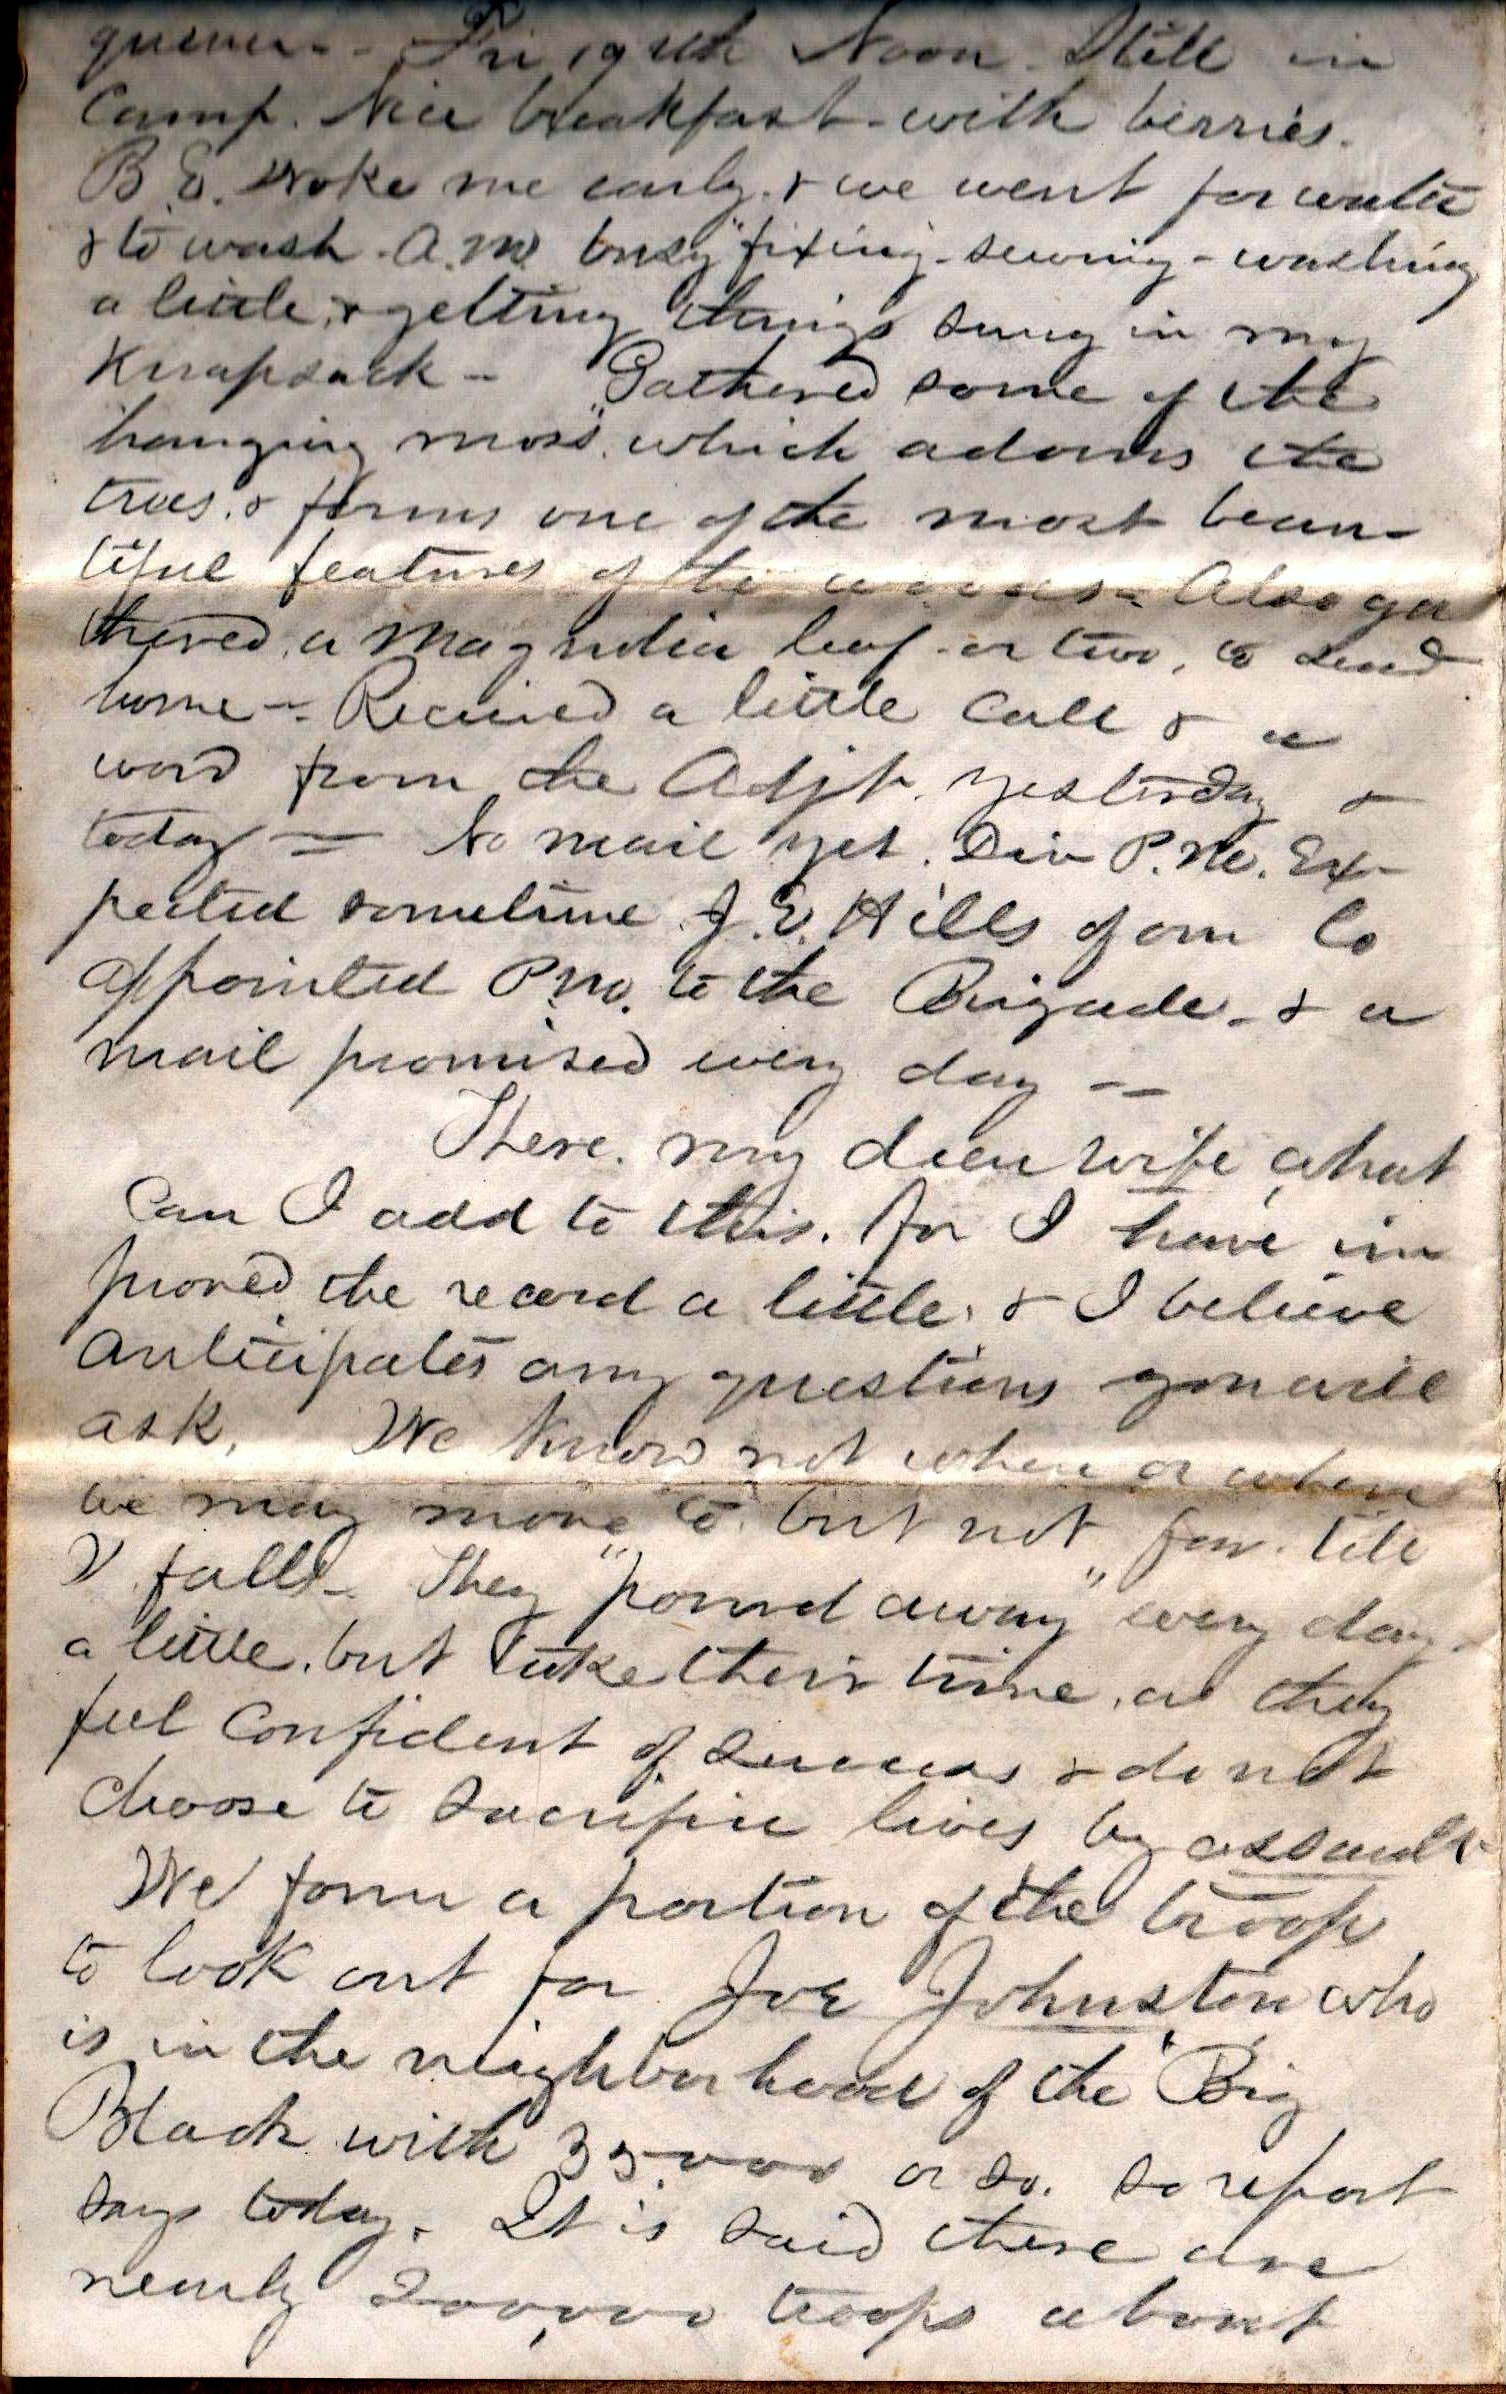 Fri 19th Noon. Still in
Camp. Nice breakfast - with berries.
B.E. woke me early. & we went for water
& to wash - A.M. busy "fixing - sewing - washing
a little, & getting things snug in my
Knapsack - Gathered some of the
"hanging moss" which adorns the
trees. & forms one of the most beau-
tiful features of the woods - Also ga
thered, a Magnolia leaf - or two, to send
home - Received a little call & a
word from the Adjt. yesterday &
today = No mail yet. Div P.M. Ex-
pected sometime J.E. Hills of our Co
appointed P.M. to the Brigade - & a
mail promised every day --
There. my dear wife what
can I add to this. for I have im
proved the record a little, & I believe
anticipates any questions you will
ask. We know not when or where
we may move to. but not "far" till
V falls - They "pound away" every day
a little, but take their time, as they
feel confident of success & do not
choose to sacrifice lives by assault
We form a portion of the troops
to look out for Joe Johnston who
is in the neighborhood of the "Big
Black with 35000 or so. so report
says today. It is said there are
nearly 200,000 troops about